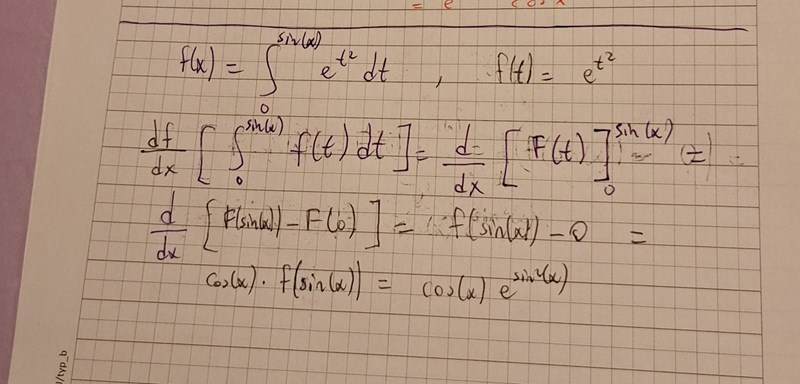 = e cos x
f(x) = ∫₀^sin(x) e^t² dt , f(t) = e^t²
df/dx [ ∫₀^sin(x) f(t) dt ] = d/dx [ F(t) ]₀^sin(x) = (±) =
d/dx [ F(sin(x)) − F(0) ] = f(sin(x)) − 0 =
cos(x) · f(sin(x)) = cos(x) e^sin²(x)
/typ_b